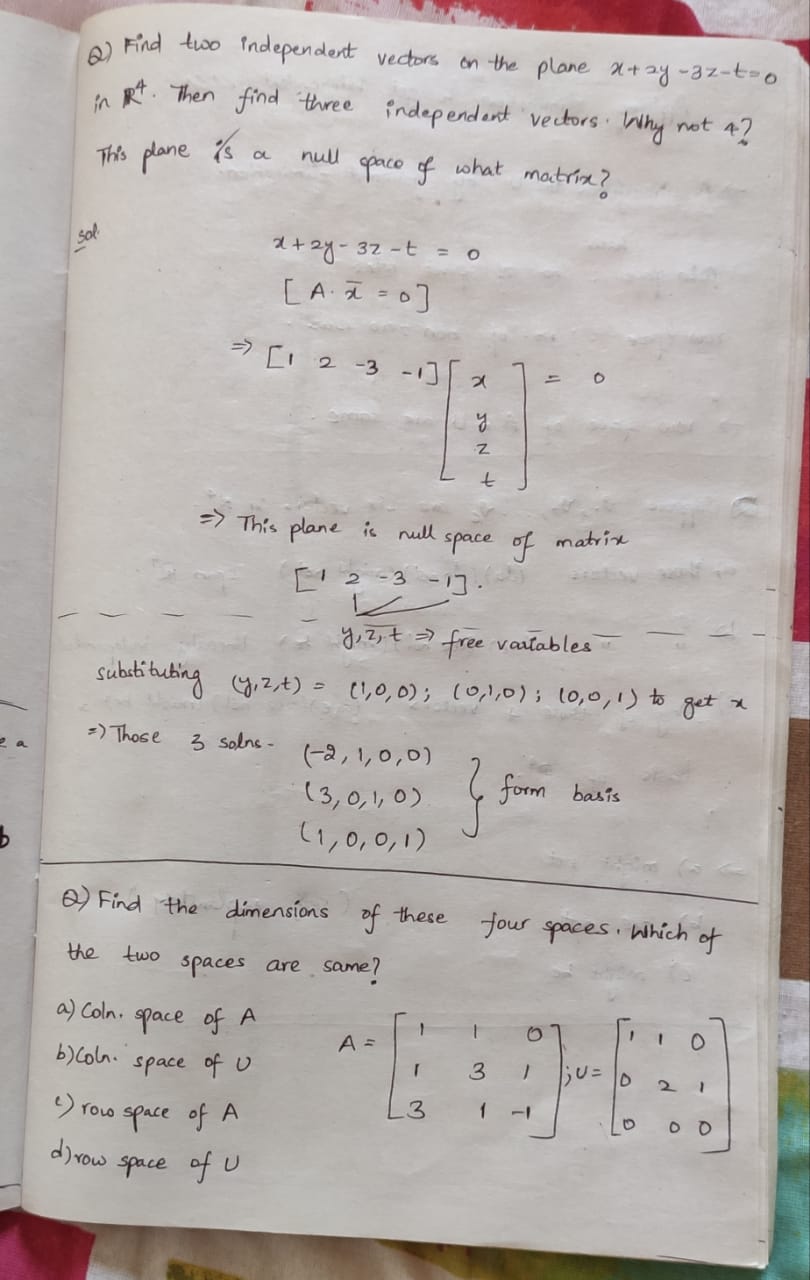 Q) Find two independent vectors on the plane x+2y-3z-t=0
in R⁴. Then find three independent vectors. Why not 4?
This plane is a null space of what matrix?
sol.
x+2y-3z-t = 0
[A.x̄ = 0]
⇒ [1 2 -3 -1] [x y z t] = 0
⇒ This plane is null space of matrix
[1 2 -3 -1].
y, z, t ⇒ free variables
substituting (y,z,t) = (1,0,0); (0,1,0); (0,0,1) to get x
⇒) Those 3 solns- (-2,1,0,0)
(3,0,1,0) } form basis
(1,0,0,1)
Q) Find the dimensions of these four spaces. Which of
the two spaces are same?
a) Coln. space of A
b) Coln. space of U
c) row space of A
d) row space of U
A = [1 1 0
1 3 1
3 1 -1]
; U = [1 1 0
0 2 1
0 0 0]